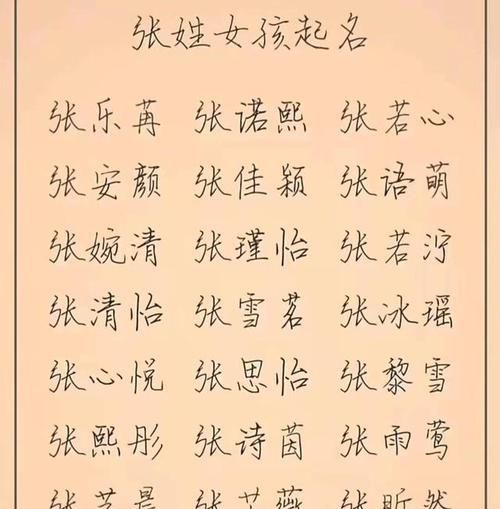 张姓女孩起名
张乐苒 张诺熙 张若心
张安颜 张佳颖 张语萌
张婉清 张瑾怡 张若泞
张清怡 张雪茗 张冰瑶
张心悦 张思怡 张黎雪
张熙彤 张诗茵 张雨莺
张艺晨 张艺燕 张昕然